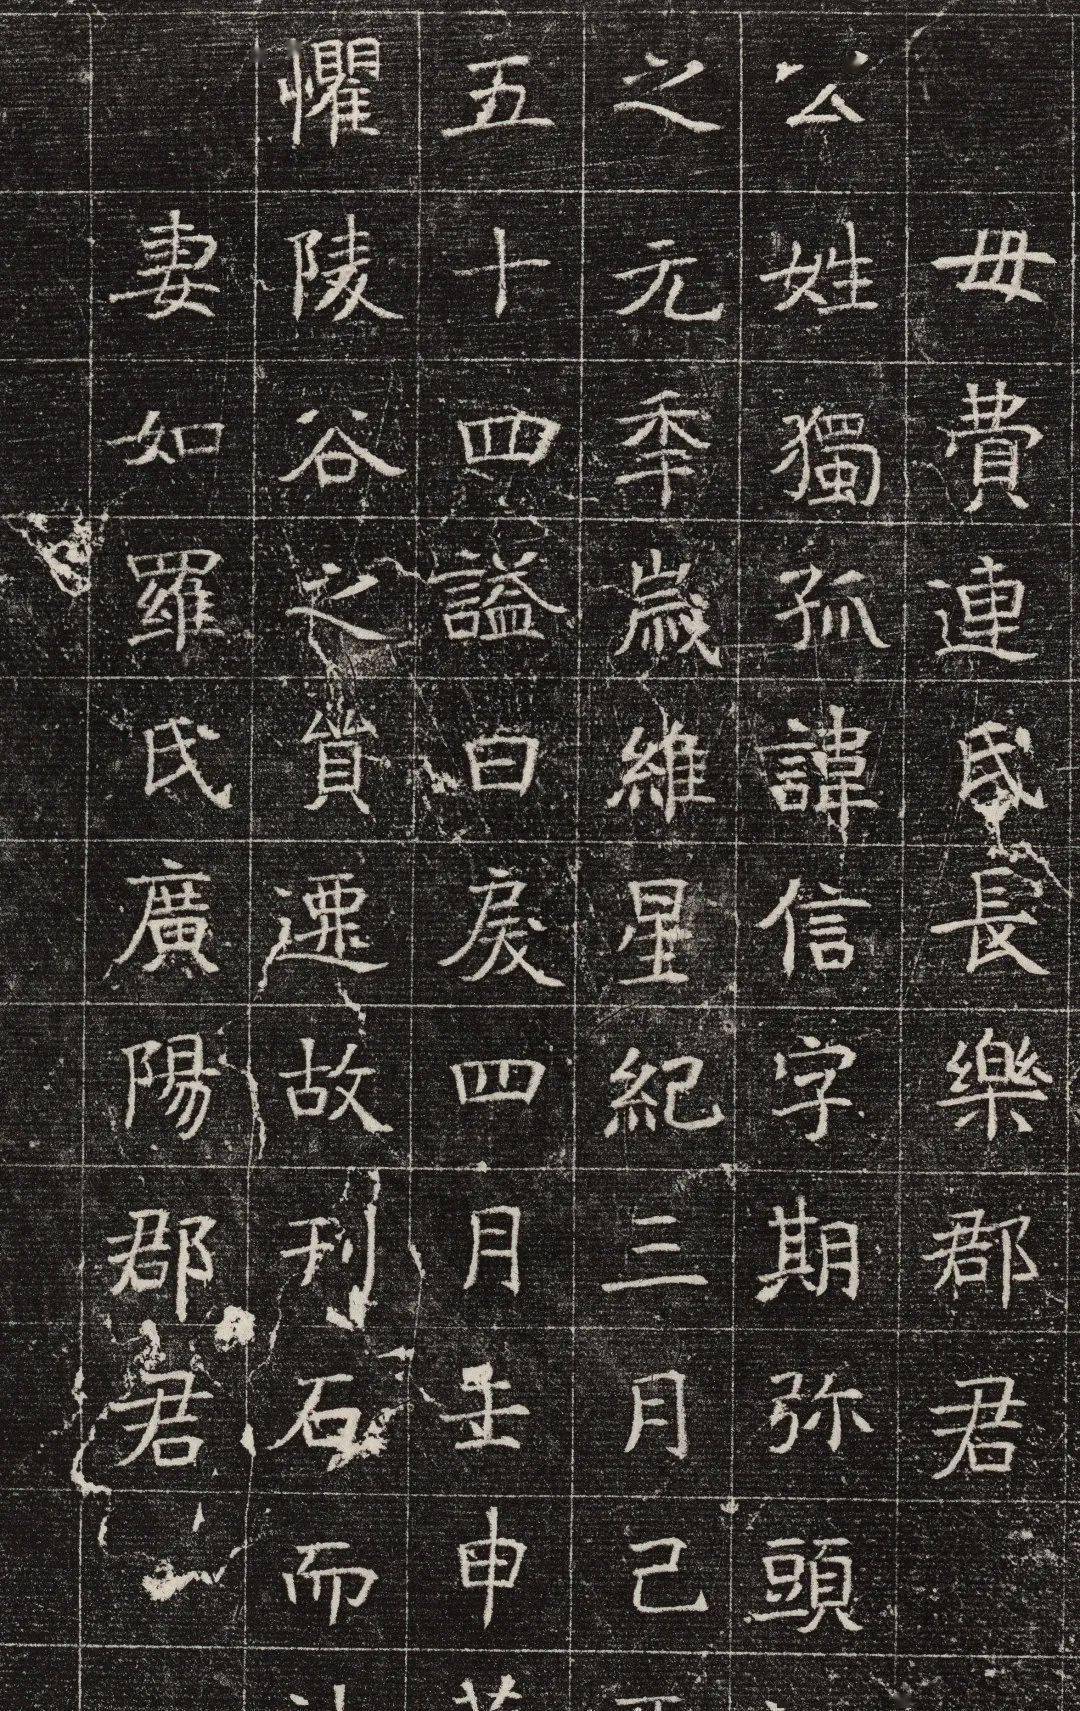 毌費連氏長樂郡君
公姓獨孤諱信字期弥頭
之元秊歲維星紀三月己
五十四謚曰戾四月壬申
懼陵谷之貿遷故刊石而
妻如羅氏廣陽郡君